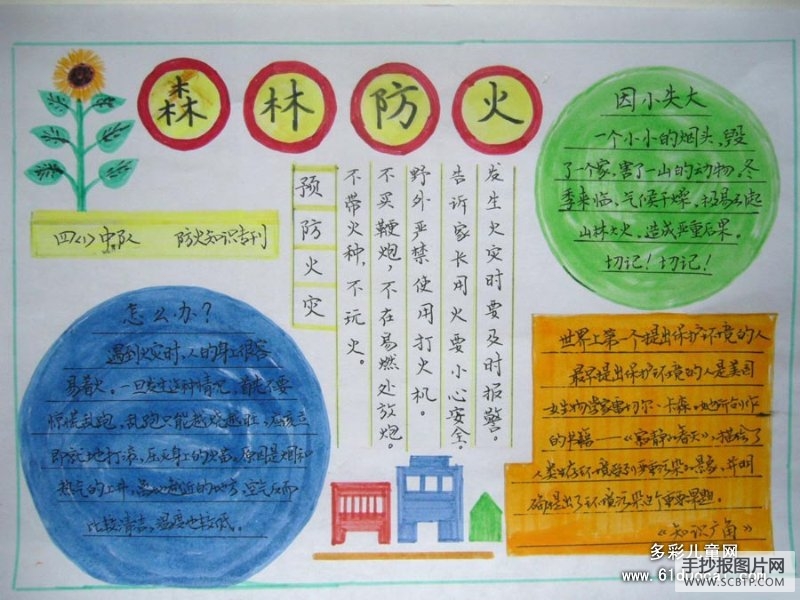 森林防火
四(1)中队 防火知识专刊
预防火灾
不带火种,不玩火。
不买鞭炮,不在易燃处放炮。
野外严禁使用打火机。
告诉家长用火要小心安全。
发生火灾时要及时报警。
因小失大
一个小小的烟头,毁
了一个家,害了一山的动物,冬
季来临,气候干燥,极易引起
山林大火,造成严重后果。
切记!切记!
怎么办?
遇到火灾时,人的身上很容
易着火。一旦发生这种情况,首先不要
惊慌乱跑,乱跑只能越烧越旺,应该立
即就地打滚,压灭身上的火苗,原因是烟和
热气的上升,离地越近的地方,空气反而
比较清洁,温度也较低。
世界上第一个提出保护环境的人
最早提出保护环境的人是美国
女生物学家雷切尔·卡森。她所创作
的书籍——《寂静的春天》,描绘了
人类生存环境受到严重污染的景象,并明
确提出了环境污染这个重要课题。
《知识广角》
多彩儿童网
www.61duocai.com
手抄报图片网
WWW.SCBTP.COM